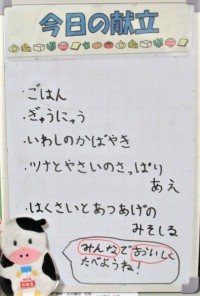 今日の献立
・ごはん
・ぎゅうにゅう
・いわしのかばやき
・ツナとやさいのさっぱり
あえ
・はくさいとあつあげの
みそしる
みんなでおいしく
たべようね!